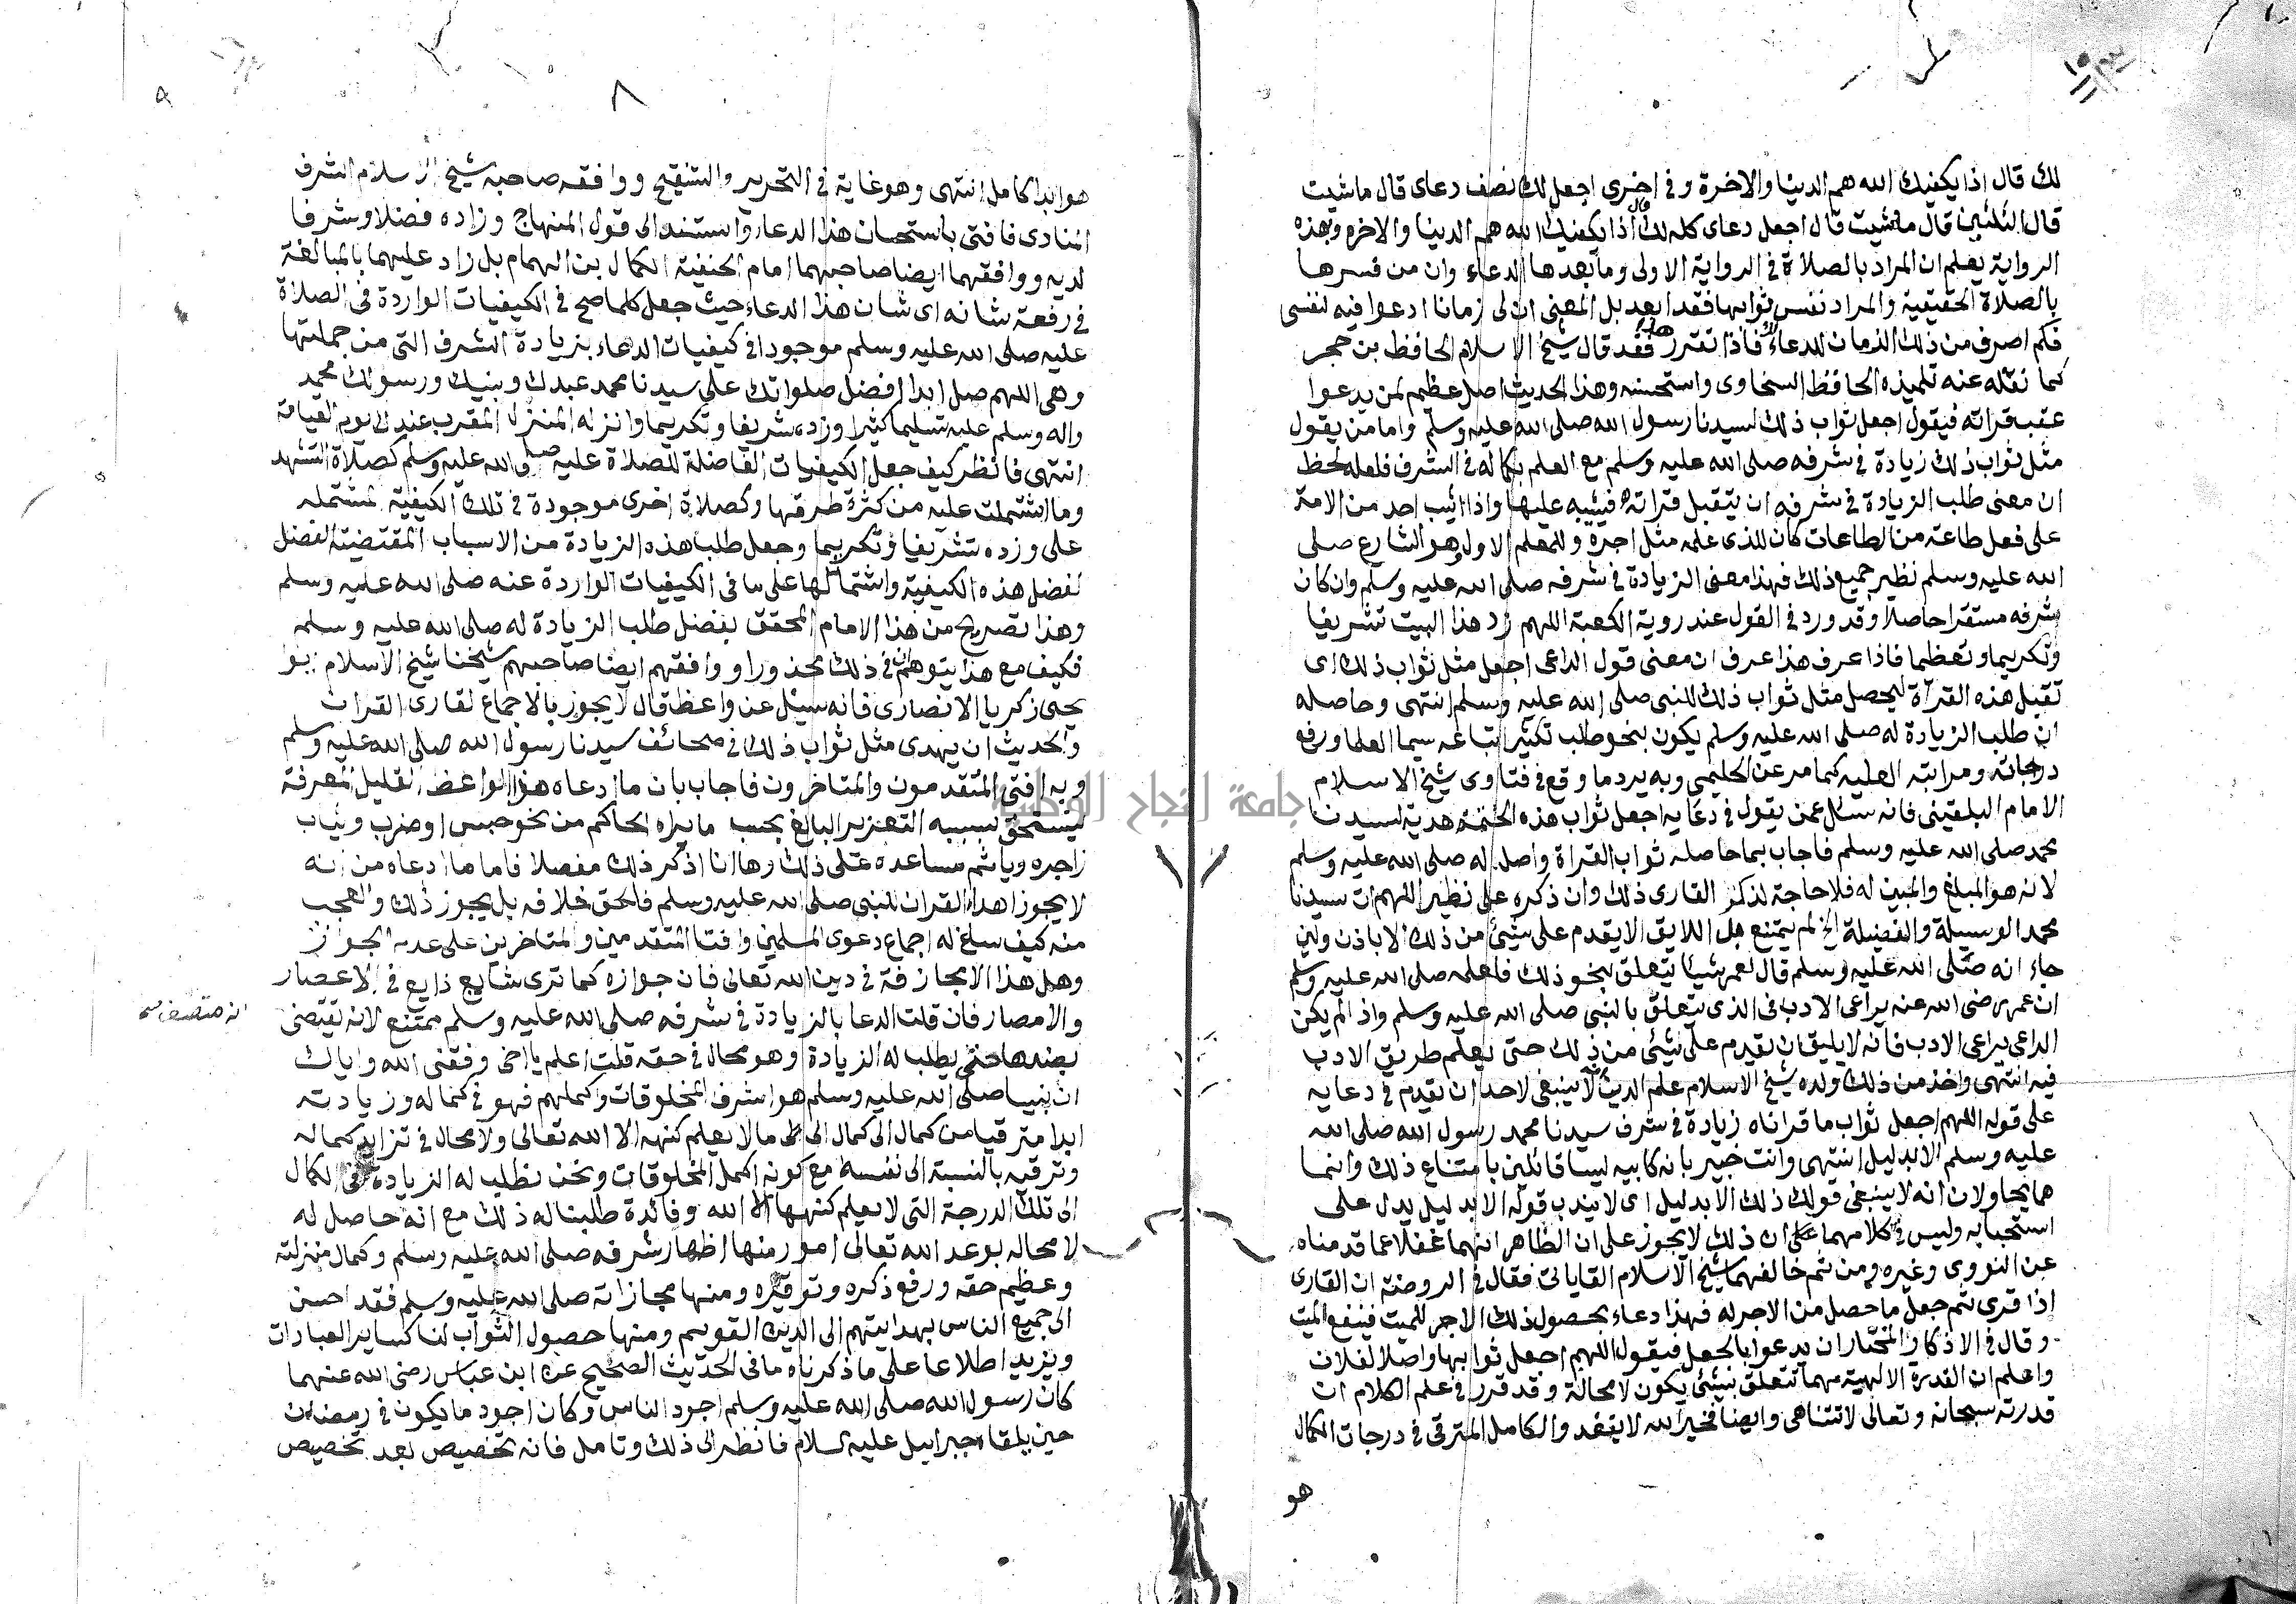 لك قال اذا يكفيك الله هم الدنيا والاخرة وفي اخرى اجعل لك نصف دعاى قال ماشيت
قال الثلثين قال ماشيت قال اجعل دعاى كله لك قال اذا يكفيك الله هم الدنيا والاخره وبهذه
الرواية يعلم ان المراد بالصلاة في الرواية الاولى وما بعدها الدعاء وان من فسرها
بالصلاة الحقيقية والمراد نفس ثوابها فقد ابعد بل المعنى ان لى زمانا ادعوا فيه لنفسى
فكم اصرف من ذلك الزمان للدعاء لك فاذا تقرر هذا فقد قال شيخ الاسلام الحافظ بن حجر
كما نقله عنه تلميذه الحافظ السخاوى واستحسنه وهذا الحديث اصل عظيم لمن يدعوا
عقب قراته فيقول اجعل ثواب ذلك لسيدنا رسول الله صلى الله عليه وسلم واما من يقول
مثل ثواب ذلك زيادة في شرفه صلى الله عليه وسلم مع العلم بكماله في الشرف فلعله لحظ
ان معنى طلب الزيادة في شرفه ان يتقبل قراته فيثيبه عليها واذا اثيب احد من الامة
على فعل طاعة من الطاعات كان للذى علمه مثل اجره وللمعلم الاول وهو الشارع صلى
الله عليه وسلم نظير جميع ذلك فهذا معنى الزيادة في شرفه صلى الله عليه وسلم وان كان
شرفه مستقرا حاصلا وقد ورد في القول عند روية الكعبة اللهم زد هذا البيت تشريفا
وتكريما وتعظيما فاذا عرف هذا عرف ان معنى قول الداعى اجعل مثل ثواب ذلك اى
تقبل هذه القرآة ليحصل مثل ثواب ذلك للنبى صلى الله عليه وسلم انتهى وحاصله
ان طلب الزيادة له صلى الله عليه وسلم يكون بنحو طلب تكثير اتباعه سيما العلما ورفع
درجاته ومراتبه العليه كما مر عن الحليمي وبه يرد ما وقع في فتاوى شيخ الاسلام
الامام البلقينى فانه سئل عمن يقول في دعايه اجعل ثواب هذه الختمة هدية لسيدنا
محمد صلى الله عليه وسلم فاجاب بما حاصله ثواب القراة واصل له صلى الله عليه وسلم
لانه هو المبلغ والمبين له فلا حاجة لذكر القارى ذلك وان ذكره على نظير اللهم ات سيدنا
محمد الوسيلة والفضيلة الخ لم يمتنع بل اللايق الا يقدم على شيئ من ذلك الا باذن ولين
جاء انه صلى الله عليه وسلم قال لعمر شيئا يتعلق بنحو ذلك فلعلمه صلى الله عليه وسلم
ان عمر رضى الله عنه يراعى الادب في الذى يتعلق بالنبى صلى الله عليه وسلم واذا لم يكن
الداعى يراعى الادب فانه لا يليق ان يقدم على شيئ من ذلك حتى يعلم طريق الادب
فيه انتهى واخذ من ذلك ولده شيخ الاسلام علم الدين لا ينبغى لاحد ان يقدم في دعايه
على قوله اللهم اجعل ثواب ما قراناه زيادة في شرف سيدنا محمد رسول الله صلى الله
عليه وسلم الا بدليل انتهى وانت خبير بانه كابيه ليسا قائلين بامتناع ذلك وانما
هما يحاولان انه لا ينبغى قولك ذلك الا بدليل اى لا يندب قوله الا بدليل يدل على
استحبابه وليس في كلامهما على ان ذلك لا يجوز على ان الظاهر انهما غفلا عما قدمناه
عن النووى وغيره ومن ثم خالفهما شيخ الاسلام القاياتى فقال في الروضة ان القارى
اذا قرى ثم جعل ما حصل من الاجر له فهذا دعاء بحصول ذلك الاجر للميت فينفع الميت
وقال في الاذكار والمختار ان يدعوا بالجعل فيقول اللهم اجعل ثوابها واصلا لفلان
واعلم ان القدرة الالهية مهما تتعلق بشيئ يكون لا محالة وقد قرر في علم الكلام ان
قدرته سبحانه وتعالى لا تتناهى وايضا فخير الله لا ينفد والكامل المترقى في درجات الكمال
هو
٨
هو ابدا كامل انتهى وهو غاية في التحرير والتنقيح ووافقه صاحبه شيخ الاسلام الشرف
المناوى فافتى باستحسان هذا الدعاء واستند الى قول المنهاج وزاده فضلا وشرفا
لديه ووافقهما ايضا صاحبهما امام الحنفية الكمال بن الهمام بل زاد عليهما بالمبالغة
في رفعة شانه اى شان هذا الدعاء حيث جعل كلما صح في الكيفيات الواردة في الصلاة
عليه صلى الله عليه وسلم موجودا في كيفيات الدعاء بزيادة الشرف التى من جملتها
وهي اللهم صل ابدا افضل صلواتك على سيدنا محمد عبدك ونبيك ورسولك محمد
واله وسلم عليه تسليما كثيرا وزده شريفا وتكريما وانزله المنزل المقرب عندك يوم القيامة
انتهى فانظر كيف جعل الكيفيات الفاضلة للصلاة عليه صلى الله عليه وسلم كصلاة التشهد
وما اشتملت عليه من كثرة طرقها وكصلاة اخرى موجودة في تلك الكيفية المشتملة
على وزده تشريفا وتكريما وجعل طلب هذه الزيادة من الاسباب المقتضية لفضل
تفضل هذه الكيفية واشتمالها على ما في الكيفيات الواردة عنه صلى الله عليه وسلم
وهذا تصريح من هذا الامام المحقق بفضل طلب الزيادة له صلى الله عليه وسلم
فكيف مع هذا يتوهم ان في ذلك محذورا ووافقهم ايضا صاحبهم شيخنا شيخ الاسلام ابو
يحيى زكريا الانصارى فانه سئل عن واعظ قال لا يجوز بالاجماع لقارى القران
والحديث ان يهدى مثل ثواب ذلك في صحائف سيدنا رسول الله صلى الله عليه وسلم
وبه افتى المتقدمون والمتاخرون فاجاب بان ما ادعاه هذا الواعظ القليل المعرفة
ليستحق بسببه التعزير البالغ بحسب ما يراه الحاكم من نحو حبس او ضرب ويثاب
زاجره وياثم مساعده على ذلك وها انا اذكر ذلك مفصلا فاما ما ادعاه من انه
لا يجوز اهداء القران للنبى صلى الله عليه وسلم فالحق خلافه بل يجوز ذلك والعجب
منه كيف سلغ له اجماع دعوى المسلمين وافتا المتقدمين والمتاخرين على عدم الجواز
وهل هذا الا مجازفة في دين الله تعالى فان جوازه كما ترى شايع ذايع في الاعصار
والامصار فان قلت الدعا بالزيادة في شرفه صلى الله عليه وسلم ممتنع لانه يقتضى
بضدها حتى يطلب له الزيادة وهو محال في حقه قلت اعلم يا اخى وفقنى الله واياك
ان نبينا صلى الله عليه وسلم هو اشرف المخلوقات واكملهم فهو في كماله وزيادته
ابدا مترقيا من كمال الى كمال الى ما لا يعلم كنهه الا الله تعالى ولا محال في تزايد كماله
وترقيه بالنسبة الى نفسه مع كونه اكمل المخلوقات ونحن نطلب له الزيادة في الكمال
الى تلك الدرجة التى لا يعلم كنهها الا الله وفائدة طلبنا له ذلك مع انه حاصل له
لا محاله بوعد الله تعالى امور منها اظهار شرفه صلى الله عليه وسلم وكمال منزلته
وعظيم حقه ورفع ذكره وتوقيره ومنها مجازاته صلى الله عليه وسلم فقد احسن
الى جميع الناس بهدايتهم الى الدين القويم ومنها حصول الثواب لنا كساير العبادات
ويزيد اطلاعا على ما ذكرناه ما في الحديث الصحيح عن ابن عباس رضى الله عنهما
كان رسول الله صلى الله عليه وسلم اجود الناس وكان اجود ما يكون في رمضان
حين يلقاه جبرايل عليه السلام فانظر الى ذلك وتامل فانه تخصيص بعد تخصيص
انه متصف
جامعة النجاح الوطنية